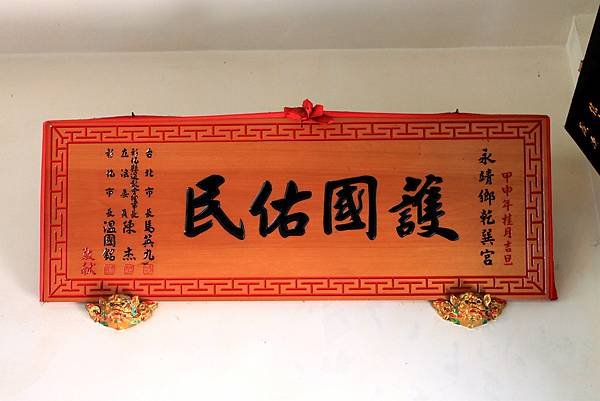 甲申年桂月吉旦
永靖鄉乾巽宮
護國佑民
台北市長馬英九
立法委員陳杰
彰化市長溫國銘
敬獻